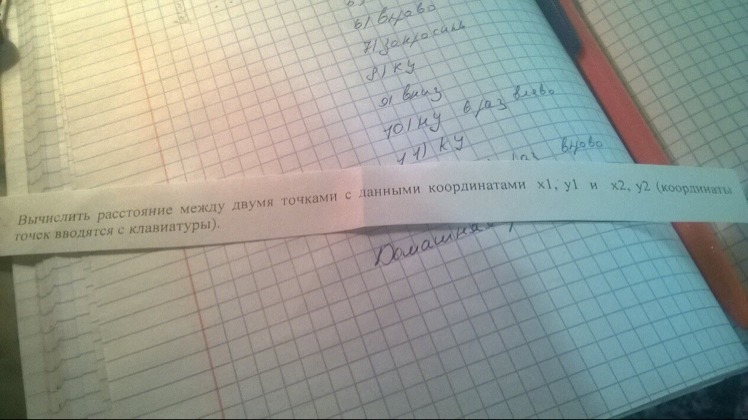 6) вправо
7) закрасить
8) ку
9) вниз
10) нц 6 раз влево
11) ку
раз вправо
Вычислить расстояние между двумя точками с данными координатами x1, y1 и x2, y2 (координаты
точек вводятся с клавиатуры).
Домашняя